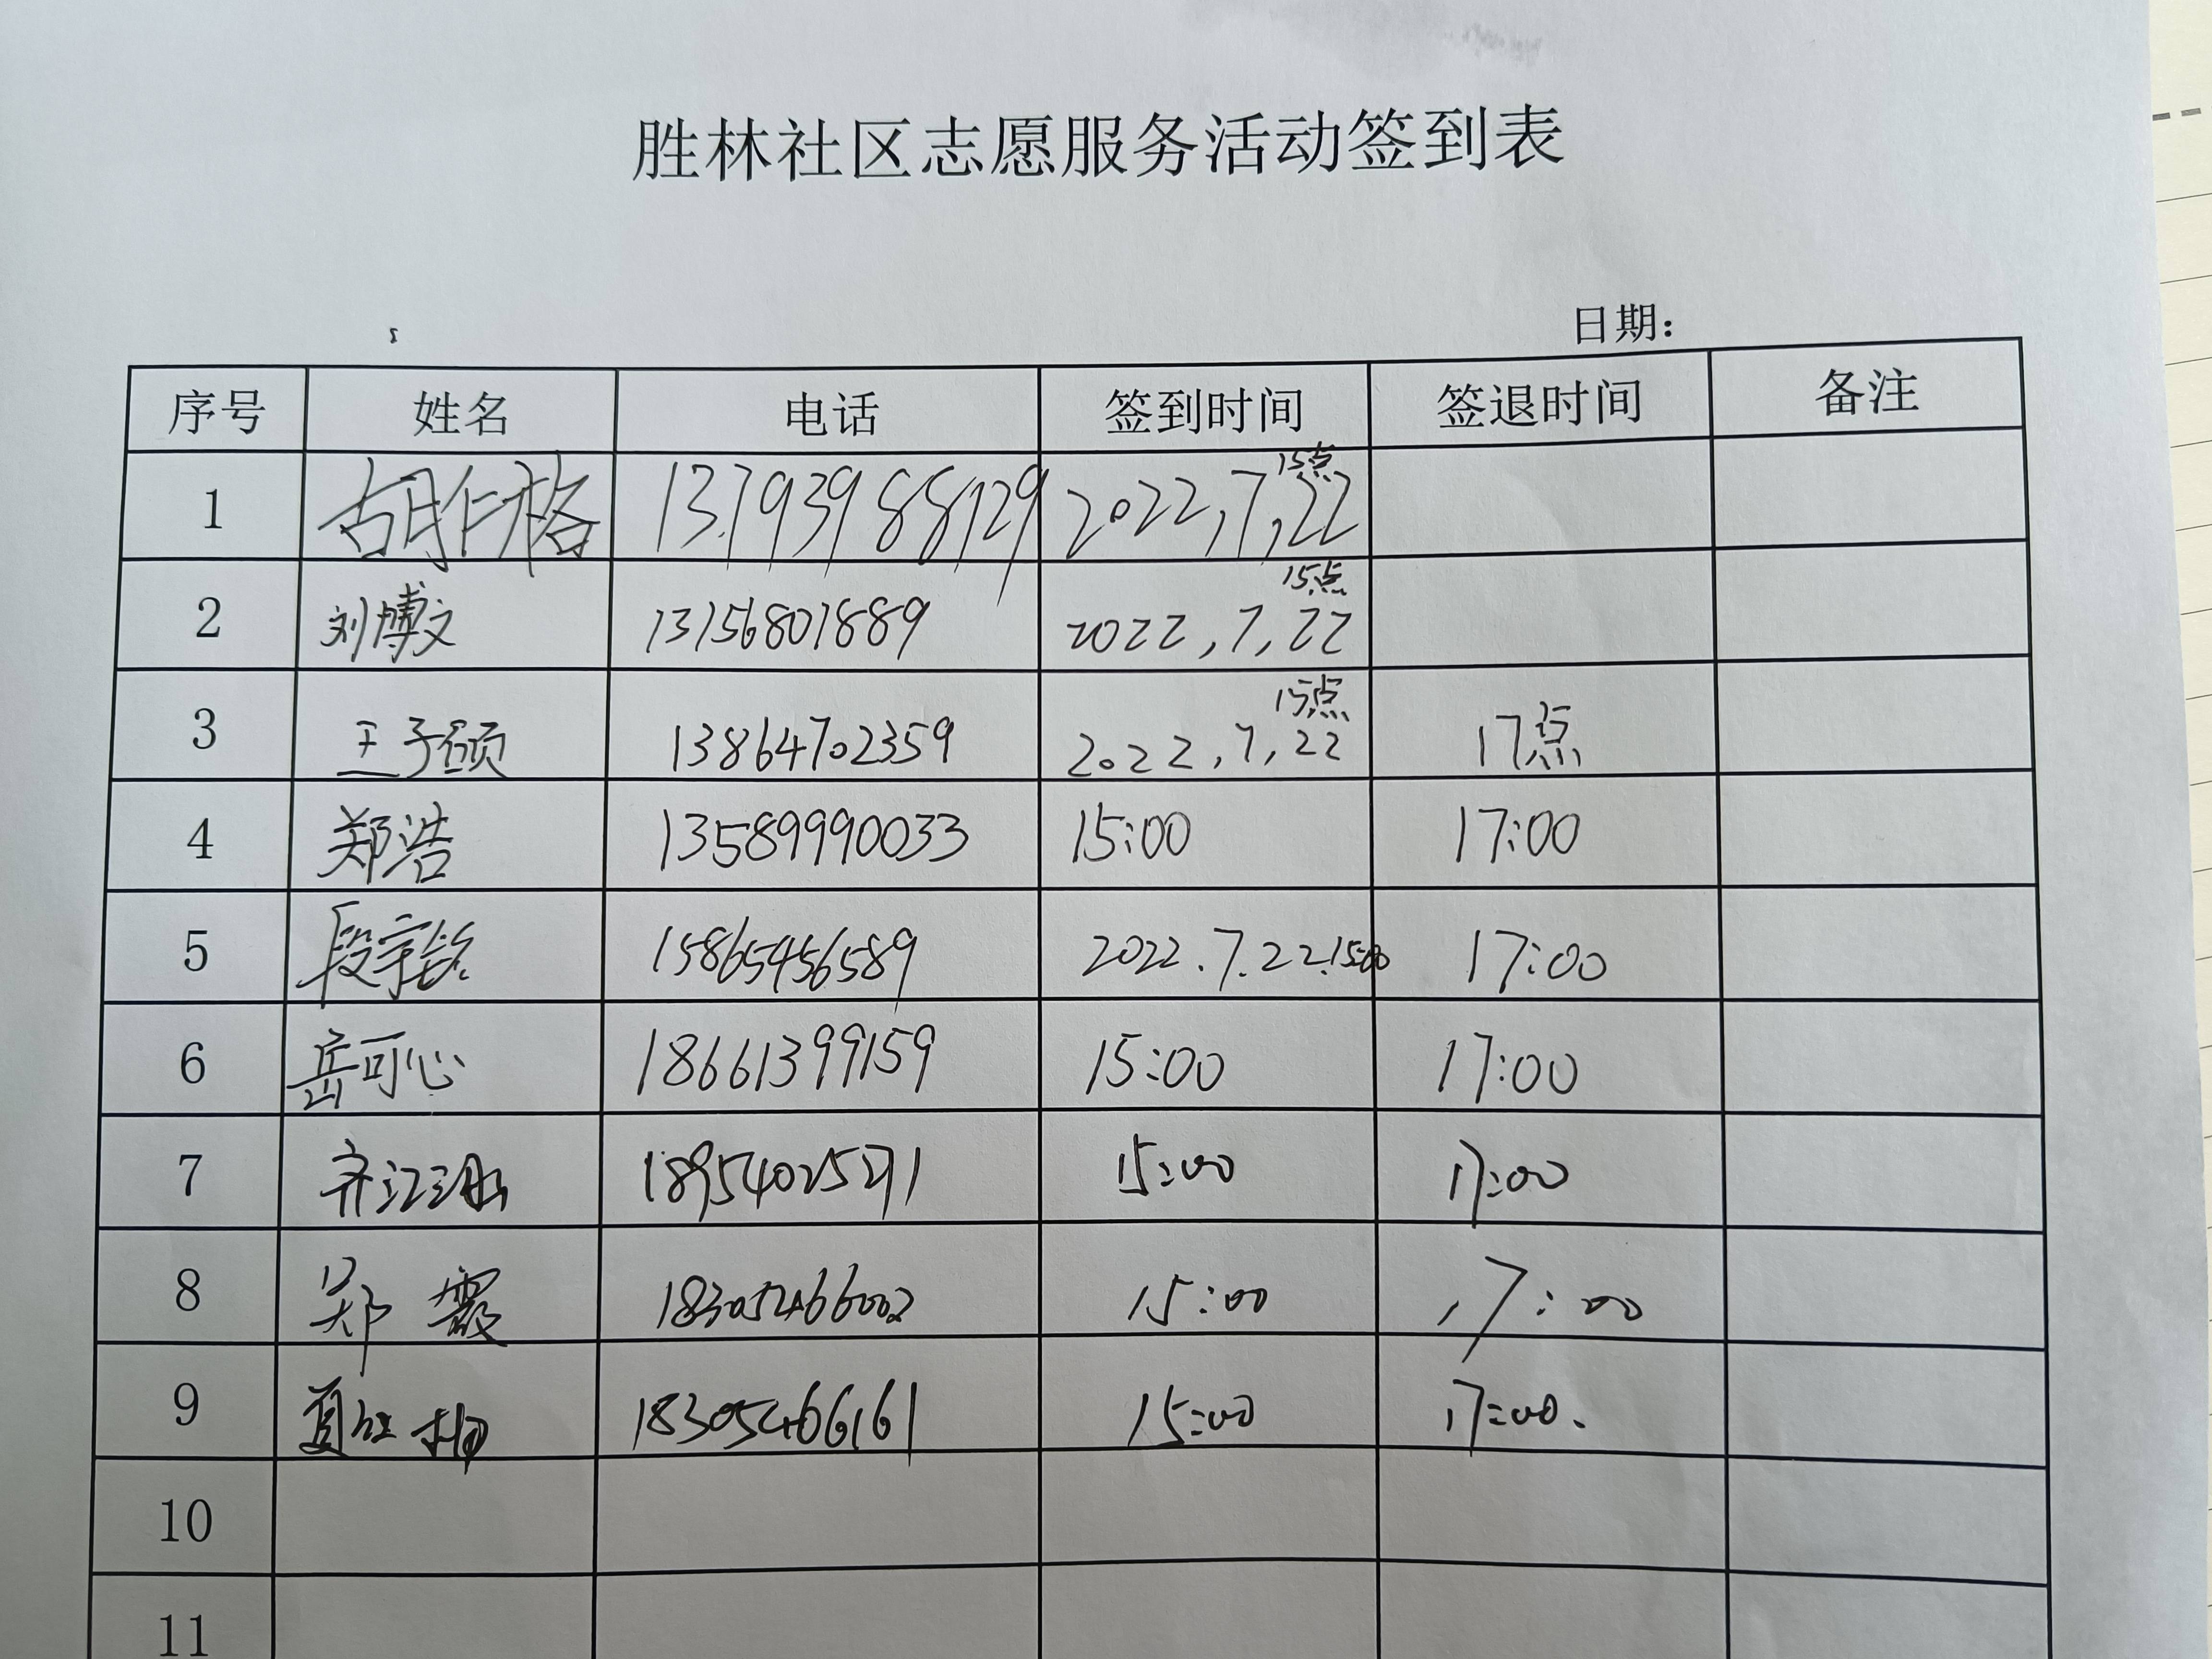 胜林社区志愿服务活动签到表
日期：
序号 姓名 电话 签到时间 签退时间 备注
15点
1 胡仁格 13793988129 2022,7,22
15点
2 刘博文 13156801889 2022,7,22
15点
3 王子硕 13864702359 2022,7,22 17点
4 郑浩 13589990033 15:00 17:00
5 段宇铭 15865456589 2022.7.22.15:00 17:00
6 岳可心 18661399159 15:00 17:00
7 齐江 15:00 17:00
8 郑霞 18305466002 15:00 17:00
9 夏 18305466161 15:00 17:00.
10
11